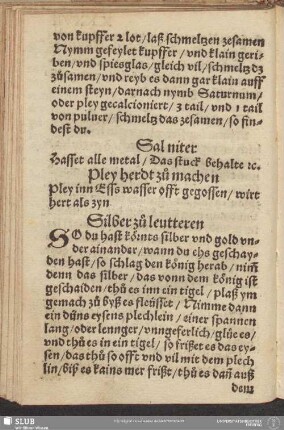 von kupffer 2 lot/ laß schmeltzen zesamen
Nymm gefeylet kupffer/ vnd klain geri-
ben/ vnd spiesglas/ gleich vil/ schmeltz dz
zůsamen/ vnd reyb es dann gar klain auff
einem steyn/ darnach nymb Saturnum/
oder pley gecalcioniert/ 3 tail/ vnd 1 tail
von puluer/ schmeltz das zesamen/ so fin-
dest du.
Sal niter
Hasset alle metal/ Das stuck behalte ⁊c.
Pley herdt zů machen
Pley inn Essz wasser offt gegossen/ wirt
hert als zyn
Silber zů leutteren
SO du hast könnts silber vnd gold vn-
der ainander/ wann du ehs geschay-
den hast/ so schlag den könig herab/ nim̃
denn das silber/ das vonn dem könig ist
geschaiden/ thů es inn ein tigel/ plaß ym
gemach zů byß es fleüsset/ Nimme dann
ein düns eysens plechlein/ einer spannen
lang/ oder lennger/ vnngeferlich/ glüe es/
vnd thů es in ein tigel/ so frißet es das ey-
sen/ das thů so offt vnd vil mit dem plech
lin/ biß es kains mer frißt/ thů es dañ auß
dem
SLUB